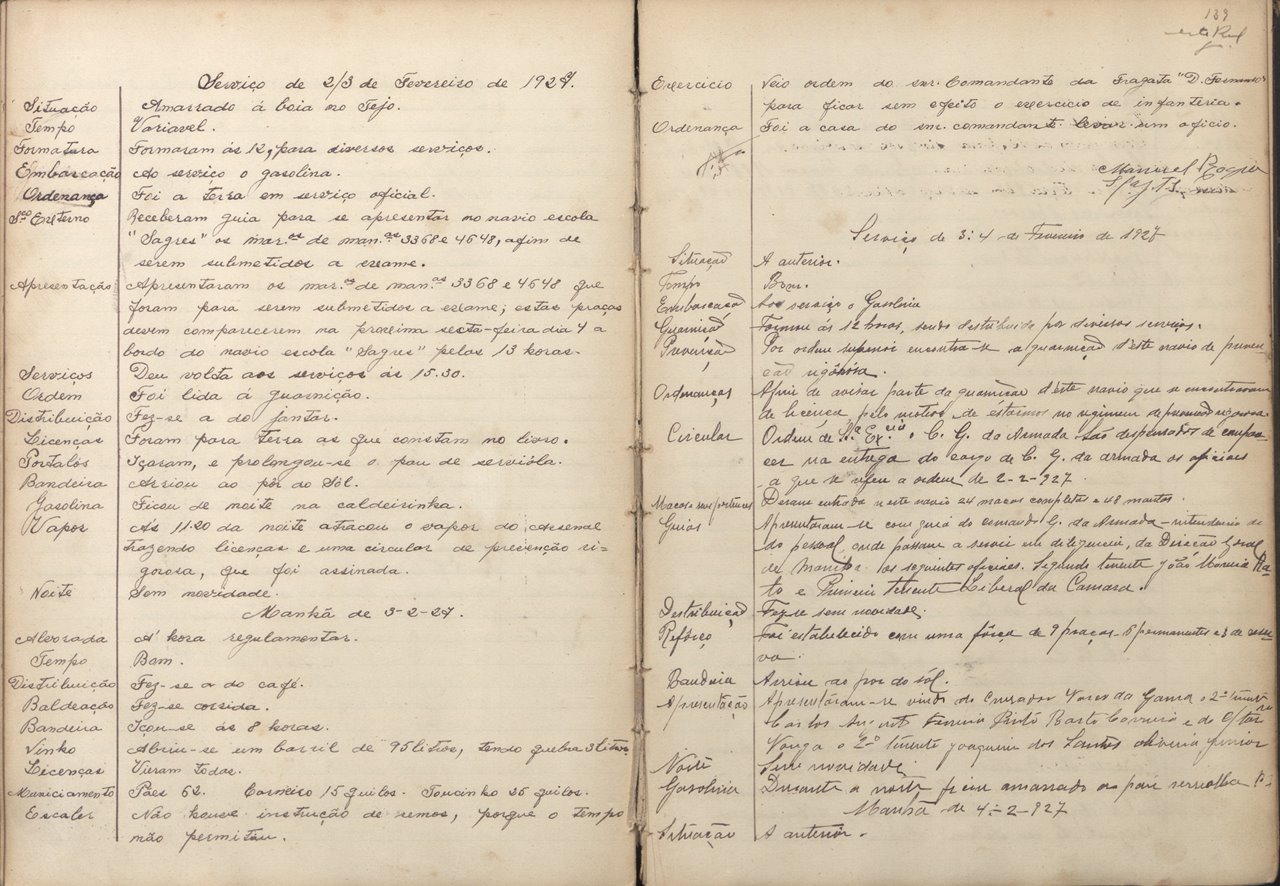 Serviço de 2/3 de Fevereiro de 1927.
Situação Amarrado á boia no Tejo.
Tempo Variavel.
Formatura Formaram ás 12, para diversos serviços.
Embarcação Ao serviço o gasolina.
Ordenança Foi a terra em serviço oficial.
Sço Externo Receberam guia para se apresentar no navio escola
"Sagres" os mar.os de man.as 3368 e 4648, afim de
serem submetidos a exame.
Apresentação Apresentaram os mar.os de man.as 3368 e 4648 que
foram para serem submetidos a exame; estas praças
devem comparecerem na proxima sexta-feira dia 4 a
bordo do navio escola "Sagres" pelas 13 horas.
Serviços Deu volta aos serviços ás 15.30.
Ordem Foi lida á guarnição.
Distribuição Fez-se a do jantar.
Licenças Foram para terra as que constam no livro.
Portalós Içaram, e prolongou-se o pau de servióla.
Bandeira Arriou ao pôr do Sol.
Gasolina Ficou de noite na caldeirinha.
Vapor Ás 11.20 da noite atracou o vapor do Arsenal
trazendo licenças e uma circular de prevenção ri-
gorosa, que foi assinada.
Noite Sem novidade.
Manhã de 3-2-27.
Alvorada A' hora regulamentar.
Tempo Bom.
Distribuição Fez-se a do café.
Baldeação Fez-se corrida.
Bandeira Içou-se ás 8 horas.
Vinho Abriu-se um barril de 95 litros, tendo quebra 3 litros
Licenças Vieram todas.
Municiamento Pães 62. Carneiro 15 quilos. Toucinho 25 quilos.
Escaler Não houve instrução de remos, porque o tempo
não permitiu.
139
Exercicio Veio ordem do snr. Comandante da Fragata "D. Fernando"
para ficar sem efeito o exercicio de infanteria.
Ordenança Foi a casa do snr. comandante levar um oficio.
Manuel
Serviço de 3:4 de Fevereiro de 1927
Situação A anterior.
Tempo Bom.
Embarcação Ao serviço o Gasolina
Guarnição Formou ás 12 horas, sendo destribuida por diversos serviços.
Prevenção Por ordem superior encontra-se a guarnição d'este navio de preven-
ção rigorosa.
Ordenanças Afim de avisar parte da guarnição d'este navio que se encontravam
de licença pelo motivo de estarmos no regimen de prevenção rigorosa.
Circular Ordem de S.ª Ex.cia o C. G. da Armada são despensados de compare-
cer na entrega do cargo de C. G. da armada os oficiais
a que se refere a ordem de 2-2-927.
Macas Deram entrada n'este navio 24 macas completas e 48 mantas.
Guias Apresentaram-se com guia do comando G. da Armada - intendencia de
do pessoal, onde passam a servir em deligencia, da Direção Geral
de Marinha os seguintes oficiaes. Segundo tenente João Moreira Ra-
to e Primeiro tenente Liberal da Camara.
Destribuição Fez-se sem novidade.
Refôrço Foi estabelecido com uma fôrça de 9 praças - 6 permanentes e 3 de reser-
va.
Bandeira Arriou ao por do sól.
Apresentação Apresentaram-se vindo do Cruzador Vasco da Gama o 2º tenente
Carlos Ferreira Pinto Basto Carreira e do
Vouga o 2º tenente Joaquim dos Santos Oliveira Junior
Noite Sem novidade.
Gasolina Durante a noite ficou amarrado ao pau
Manhã de 4-2-927
Situação A anterior.